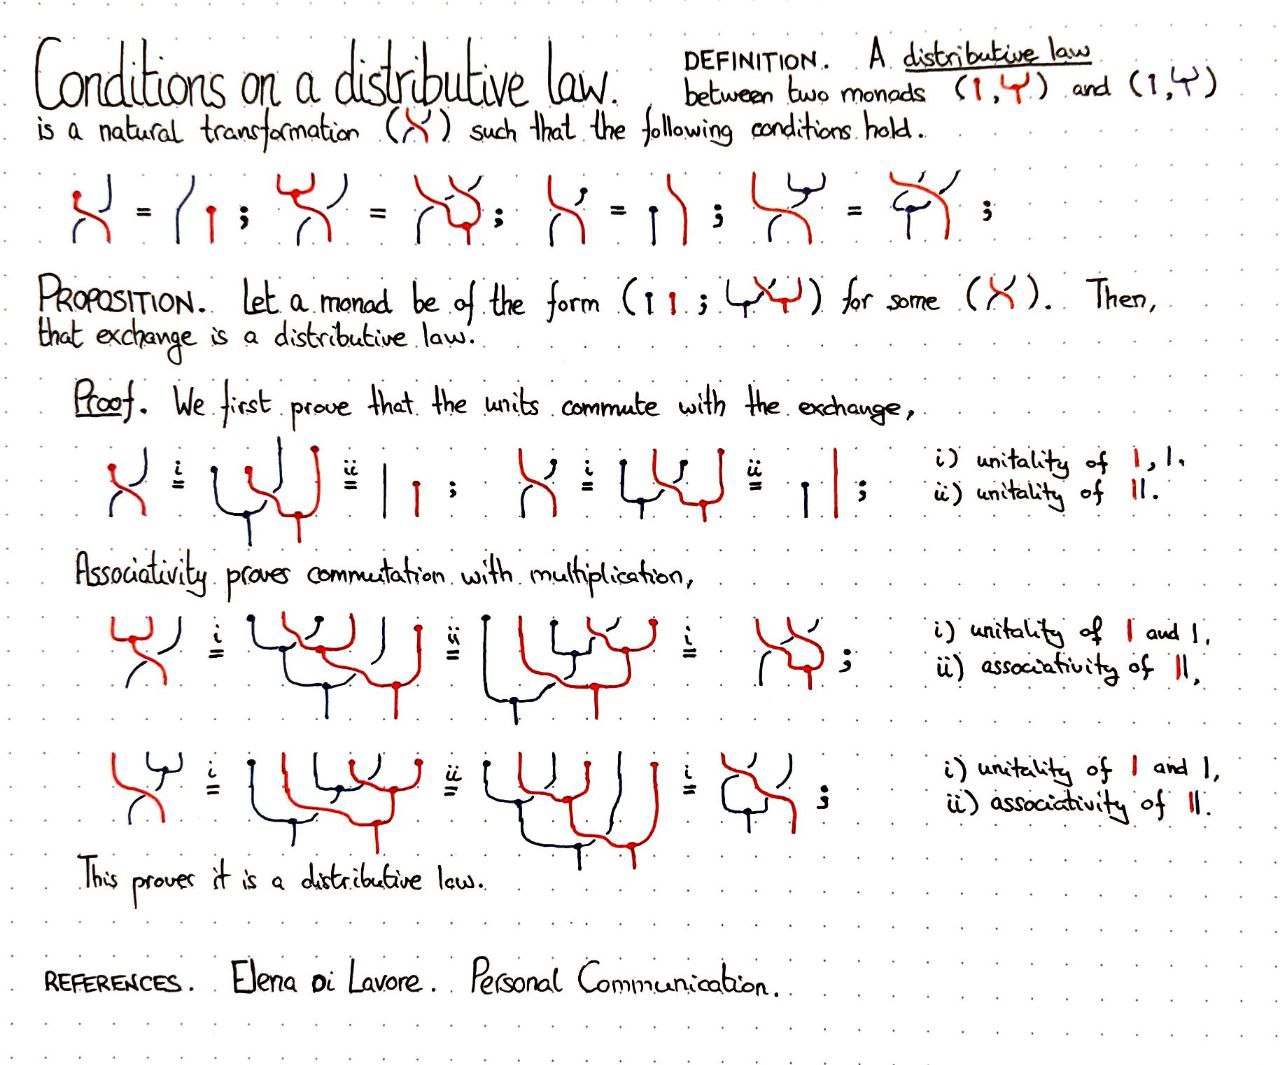 Conditions on a distributive law.
DEFINITION. A distributive law
between two monads ( , ) and ( , )
is a natural transformation ( ) such that the following conditions hold.
= ; = ; = ; = ;
PROPOSITION. Let a monad be of the form ( ; ) for some ( ). Then,
that exchange is a distributive law.
Proof. We first prove that the units commute with the exchange,
i = ii = ; i = ii = ;
i) unitality of , .
ii) unitality of .
Associativity proves commutation with multiplication,
i = ii = i = ;
i) unitality of and .
ii) associativity of ,
i = ii = i = ;
i) unitality of and ,
ii) associativity of .
This proves it is a distributive law.
REFERENCES. Elena Di Lavore. Personal Communication.